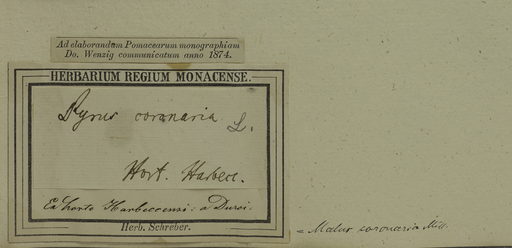 Ad elaborandam Pomacearum monographiam
Do. Wenzig communicatum anno 1874.
HERBARIUM REGIUM MONACENSE.
Pyrus coronaria L.
Hort. Harbecc.
Ex horto Harbeccensi: a Duroi.
Herb. Schreber.
= Malus coronaria Mill.